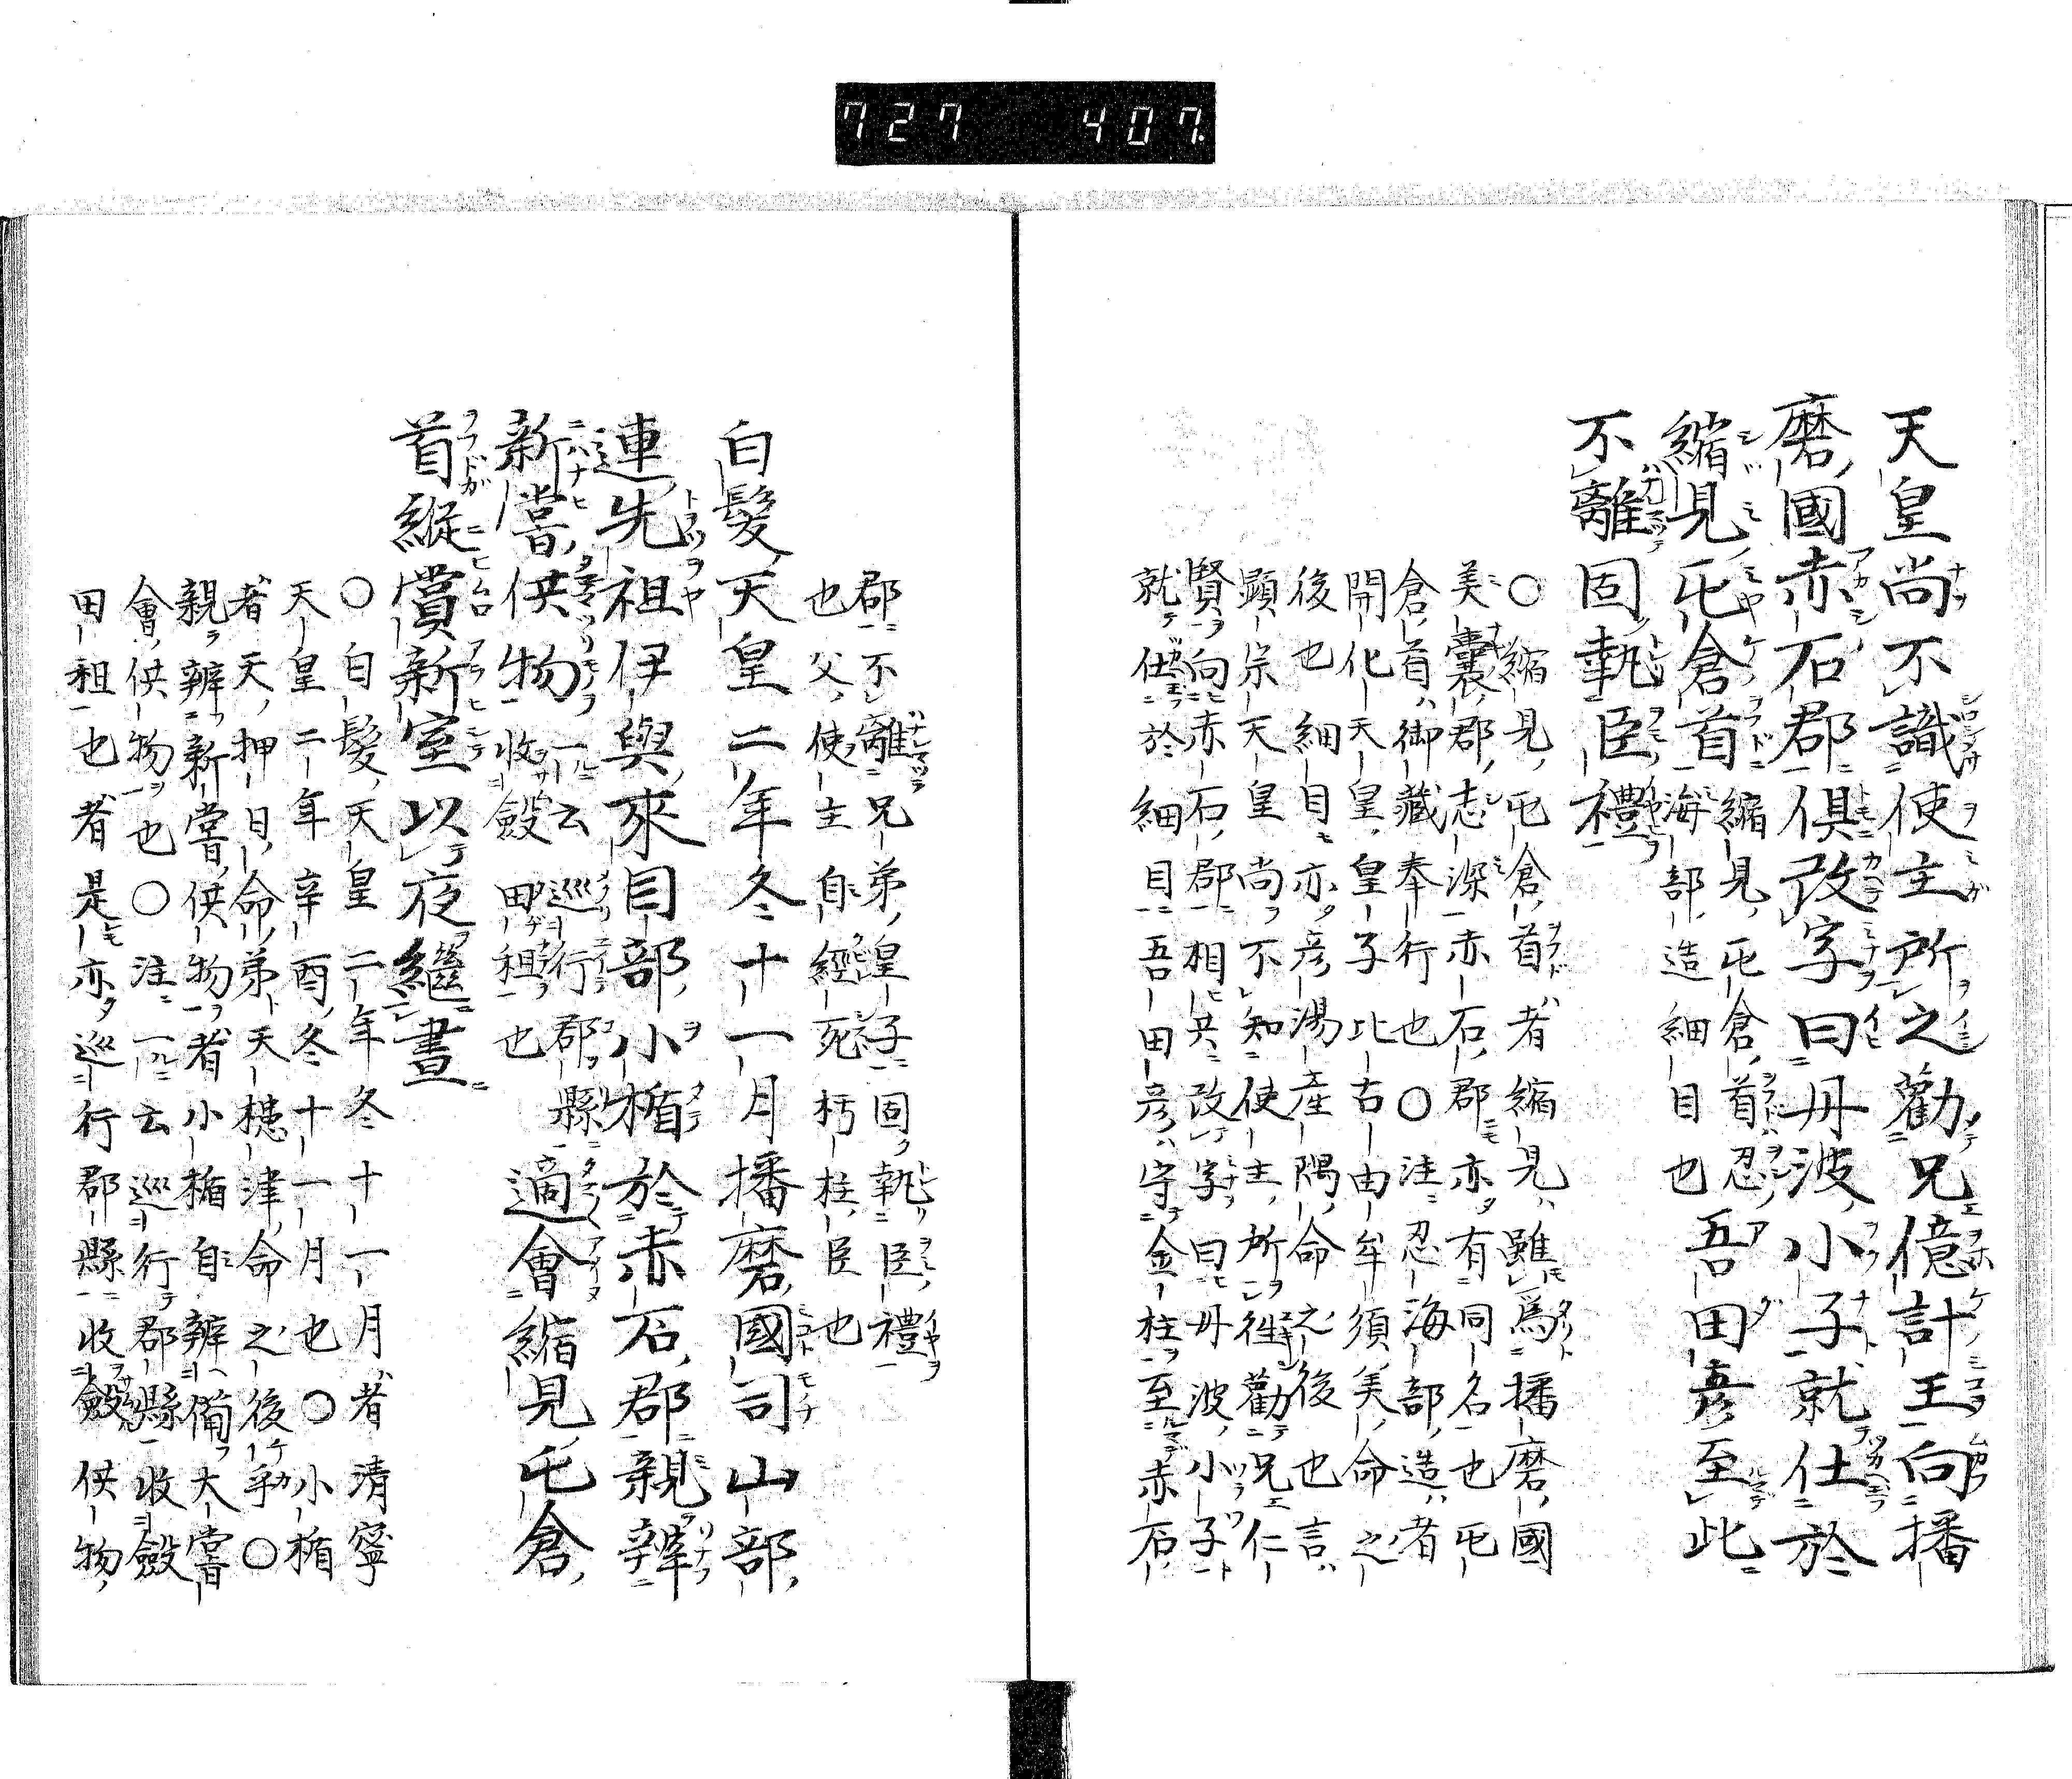 727 407.
天皇尚不識使主所之勸兄億計王向播
磨國赤石郡倶改字曰丹波小子就仕於
縮見屯倉首 縮見屯倉首忍
海部造細目也 吾田彦至此
不離固執臣禮
○縮見屯倉首者縮見雖爲播磨國
美囊郡志深赤石郡亦有同名也屯
倉首御藏奉行也○注忍海部造者
開化天皇皇子比古由牟須美命之
後也細目亦彦湯産隅命之後也言
顯宗天皇尚不知使主所徃勸兄仁
賢向赤石郡相共改字曰丹波小子
就仕於細目吾田彦守金柱至赤石
郡不離兄弟皇子固執臣禮
也父使主自經死朽柱臣也
白髮天皇二年冬十一月播磨國司山部
連先祖伊與來目部小楯於赤石郡親辨
新嘗供物 一云巡行郡縣
收斂田租也 適會縮見屯倉
首縱賞新室以夜繼晝
○白髮天皇二年冬十一月者清寧
天皇二年辛酉冬十一月也○小楯
者天押日命弟天槵津命之後乎○
親辨新嘗供物者小楯自辨備大嘗
會供物也○注一云巡行郡縣收斂
田租也者是亦巡行郡縣收斂供物